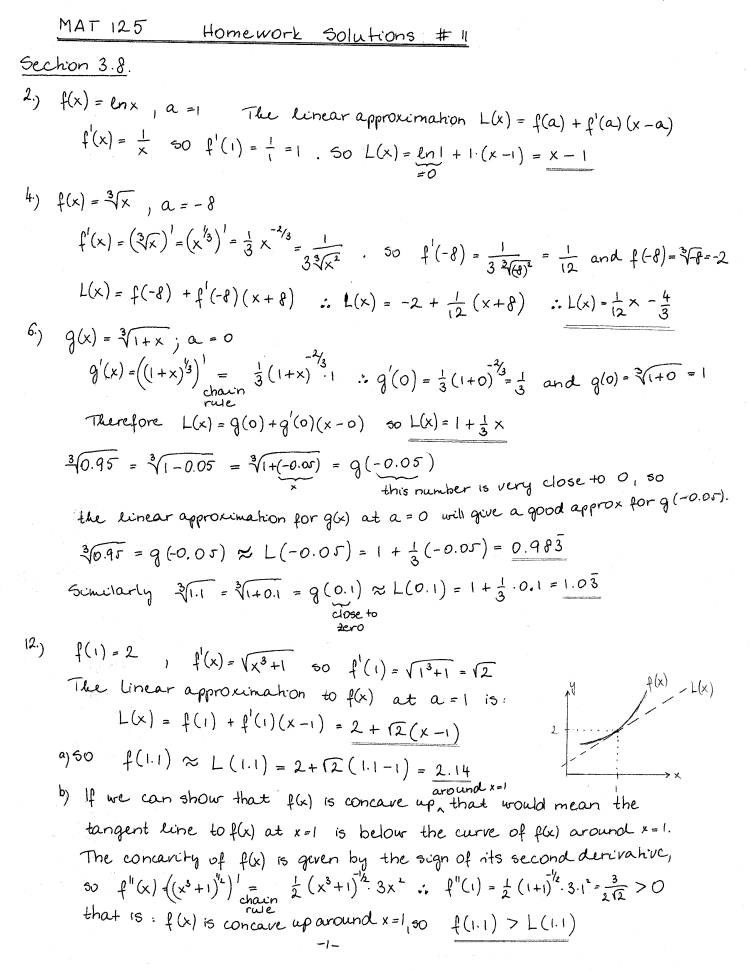 MAT 125 Homework Solutions # 11
Section 3.8.
2.) f(x) = ln x , a = 1 The linear approximation L(x) = f(a) + f'(a)(x-a)
f'(x) = 1/x so f'(1) = 1/1 = 1 . So L(x) = ln 1 + 1·(x-1) = x - 1
=0
4.) f(x) = ∛x , a = -8
f'(x) = (∛x)' = (x^(1/3))' = 1/3 x^(-2/3) = 1/(3∛x²) . so f'(-8) = 1/(3∛(-8)²) = 1/12 and f(-8) = ∛-8 = -2
L(x) = f(-8) + f'(-8)(x+8) ∴ L(x) = -2 + 1/12 (x+8) ∴ L(x) = 1/12 x - 4/3
6.) g(x) = ∛(1+x) ; a = 0
g'(x) = ((1+x)^(1/3))' = 1/3 (1+x)^(-2/3) · 1 ∴ g'(0) = 1/3 (1+0)^(-2/3) = 1/3 and g(0) = ∛(1+0) = 1
chain
rule
Therefore L(x) = g(0) + g'(0)(x-0) so L(x) = 1 + 1/3 x
∛0.95 = ∛(1-0.05) = ∛(1+(-0.05)) = g(-0.05)
x this number is very close to 0, so
the linear approximation for g(x) at a = 0 will give a good approx for g(-0.05).
∛0.95 = g(-0.05) ≈ L(-0.05) = 1 + 1/3 (-0.05) = 0.983̄
Similarly ∛1.1 = ∛(1+0.1) = g(0.1) ≈ L(0.1) = 1 + 1/3 · 0.1 = 1.03̄
close to
zero
12.) f(1) = 2 , f'(x) = √(x³+1) so f'(1) = √(1³+1) = √2
The linear approximation to f(x) at a = 1 is:
L(x) = f(1) + f'(1)(x-1) = 2 + √2 (x-1)
y f(x) L(x)
2
x
1
a) so f(1.1) ≈ L(1.1) = 2 + √2 (1.1-1) = 2.14
around x=1
b) If we can show that f(x) is concave up ^ that would mean the
tangent line to f(x) at x=1 is below the curve of f(x) around x=1.
The concavity of f(x) is given by the sign of its second derivative,
so f''(x) = ((x³+1)^(1/2))' = 1/2 (x³+1)^(-1/2) · 3x² ∴ f''(1) = 1/2 (1+1)^(-1/2) · 3·1² = 3/(2√2) > 0
chain
rule
that is : f(x) is concave up around x=1, so f(1.1) > L(1.1)
-1-